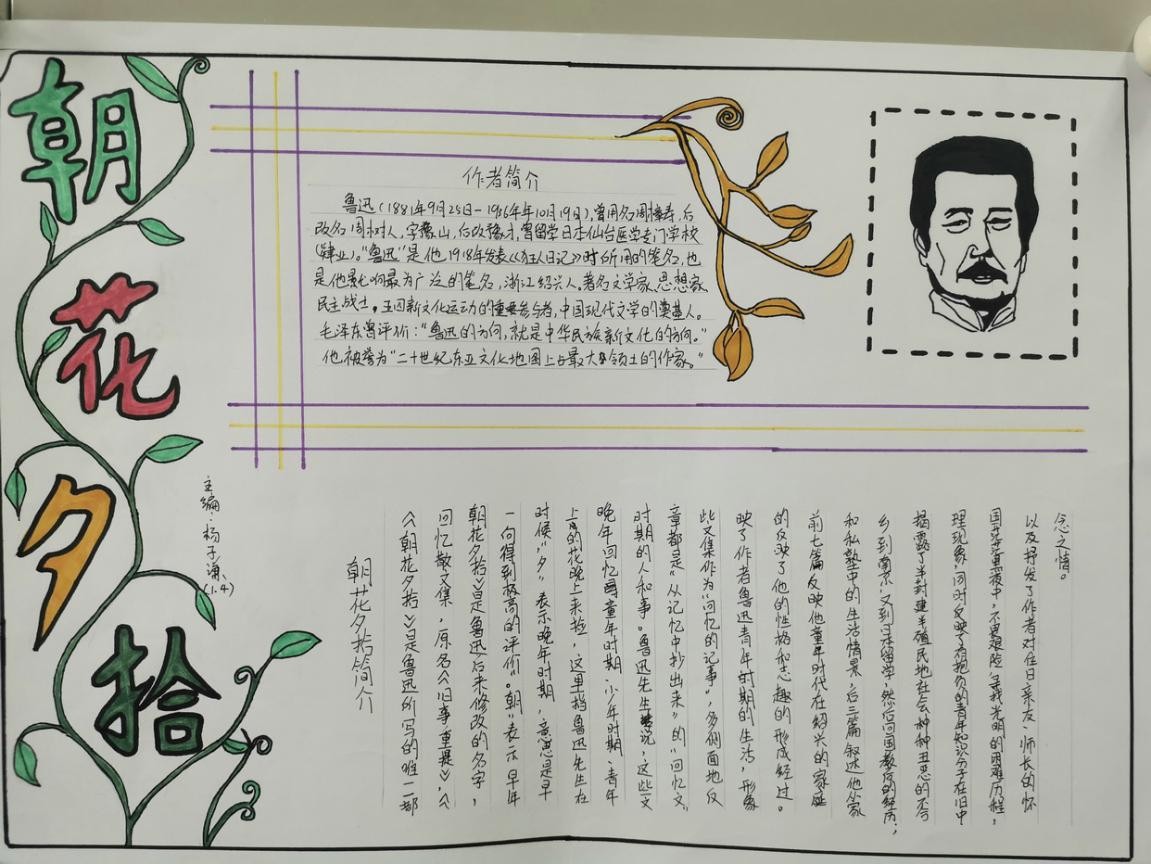 朝花夕拾
作者简介
鲁迅(1881年9月25日-1936年10月19日),曾用名周樟寿,后
改名周树人,字豫山,后改豫才,曾留学日本仙台医学专门学校
(肄业)。"鲁迅"是他1918年发表《狂人日记》时所用的笔名,也
是他影响最为广泛的笔名,浙江绍兴人。著名文学家、思想家、
民主战士,五四新文化运动的重要参与者,中国现代文学的奠基人。
毛泽东曾评价:"鲁迅的方向,就是中华民族新文化的方向。"
他被誉为"二十世纪东亚文化地图上占最大领土的作家。"
主编:杨子谦
(1.4)
朝花夕拾简介
《朝花夕拾》是鲁迅所写的唯一一部
回忆散文集,原名《旧事重提》,《
朝花夕拾》是鲁迅后来修改的名字,
一向得到极高的评价。"朝"表示早年
时候,"夕"表示晚年时期,意思是早
上的花晚上来捡,这里指鲁迅先生在
晚年回忆童年时期、少年时期、青年
时期的人和事。鲁迅先生说,这些文
章都是"从记忆中抄出来"的"回忆文"
此文集作为"回忆的记事",多侧面地反
映了作者鲁迅青年时期的生活,形象
的反映了他的性格和志趣的形成经过。
前七篇反映他童年时代在绍兴的家庭
和私塾中的生活情景,后三篇叙述他从家
乡到南京,又到日本留学,然后回国教书的经历;
揭露了半封建半殖民地社会种种丑恶的不合
理现象,同时反映了有抱负的青年知识分子在旧中
国茫茫黑夜中,不畏艰险,寻找光明的困难历程,
以及抒发了作者对往日亲友、师长的怀
念之情。